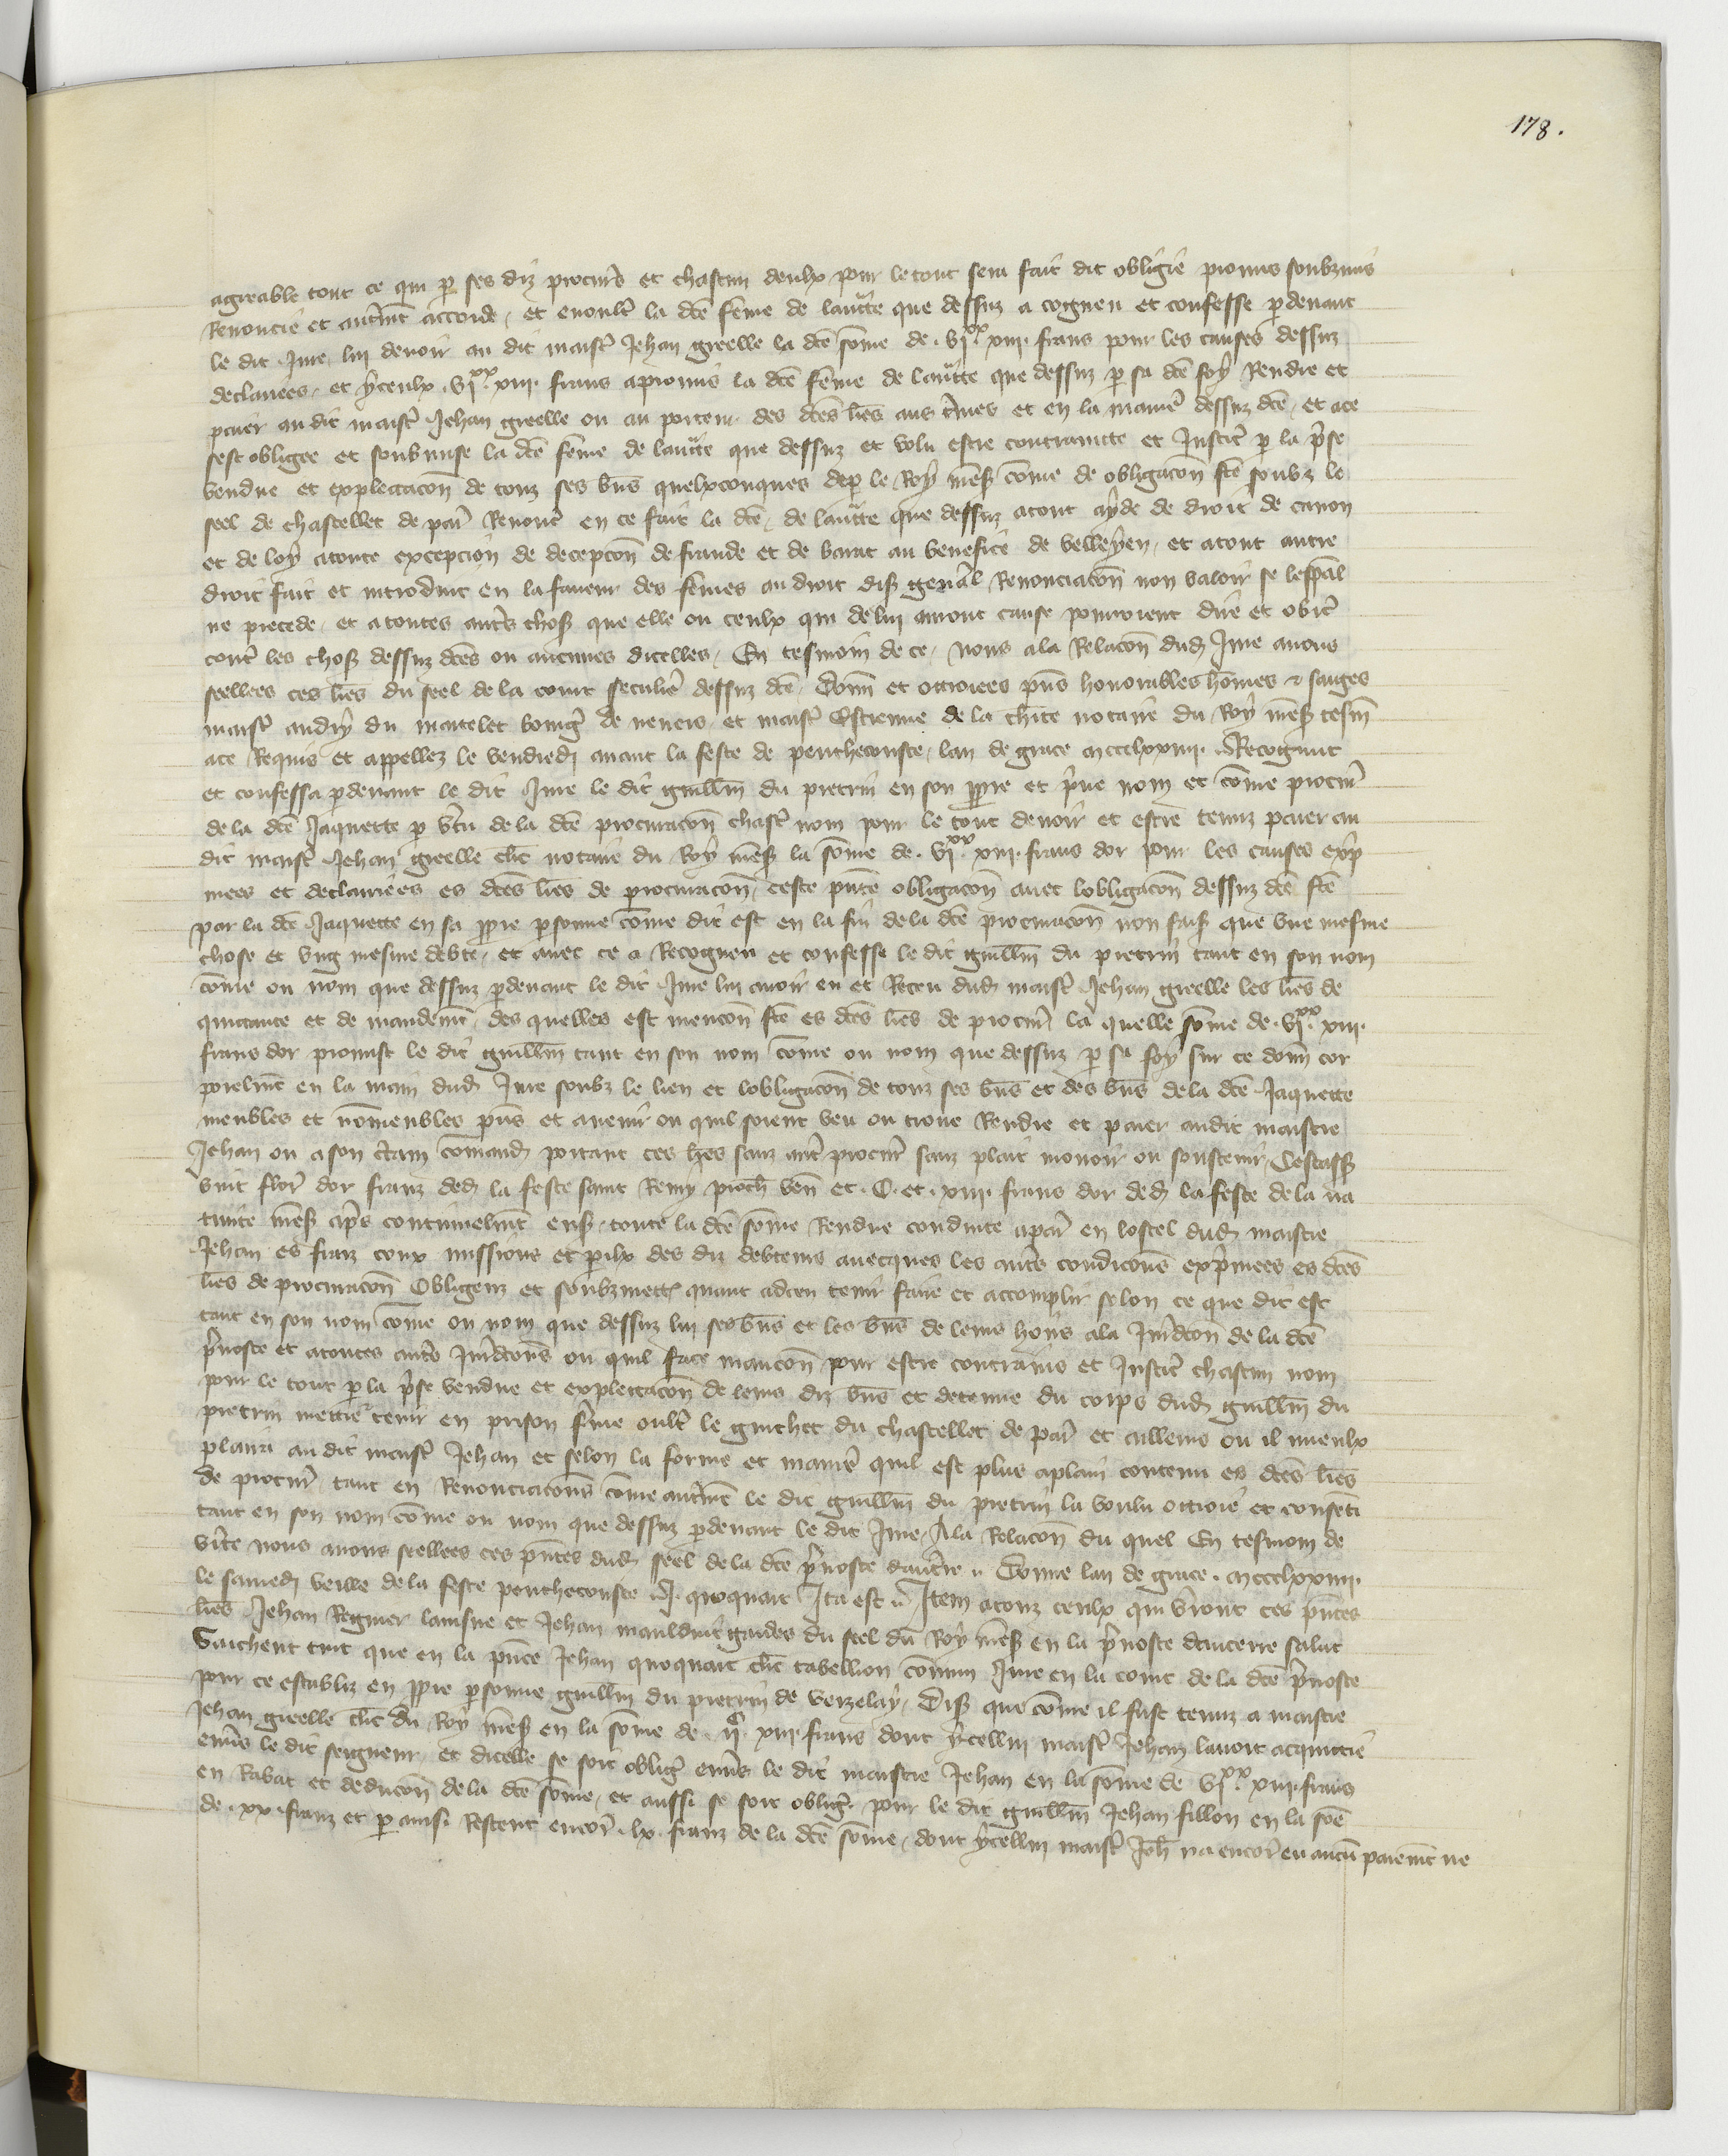 178.
agreable tout ce qui p ses diz procurs et chascun deulx pour le tout sera fait dit obligie promis soubzmis
Renoncie et autmt accorde, et enoult la dce feme de lauctte que dessuz a cogneu et confesse pdevant
le dit Jure luy devoir au dit maist Jehan greelle la dce some de . vixx xiii . frans pour les causes dessuz
declairees, et yceulx . vixx xiii . frans apromis la dce feme de lauctte que dessuz p sa dce foy Rendre et
paier au dit maist Jehan greelle ou au porteur des dces lres aus tmes et en la manie dessuz dce, et ace
sest obligee et soubmise la dce feme de lauctte que dessuz et volu estre contraincte et Justic p la pse
vendue et explectacon de touz ses bns quelxconques dep le Roy mess come de obligacon fce soubz le
seel de chastellet de par Renonc en ce fait la dce, de lauctte que dessuz atout ayde de droit de canon
et de loy atoute excepcion de decepcon de fraude et de barat au benefice de velleyen, et atout autre
droit fait et introduit en la faveur des femes au droit dis genal Renonciacon non valoir se lespal
ne precede, et a toutes autrs chos que elle ou ceulx qui de luy auront cause pourroient dire et obic
cont les chos dessuz dces ou aucunes dicelles, En tesmoin de ce, nous ala Relacon dud Jure avons
seellees ces lres du seel de la court seculie dessuz dce, Donn et ottroiees pns honorables homes & saiges
maist andry du martelet bourg de nevers, et maist Estienne de la chte notaire du Roy mess tesm
ace Requis et appellez le vendredi avant la feste de penthecouste, lan de grace mccclxxiiii. Recognut
et confessa pdevant le dit Jure le dit guillm du pietrin en son ppre et prive nom et come procur
de la dce Jaquette p vtu de la dce procuracon chasc nom pour le tout devoir et estre tenuz paier au
dit maist Jehan greelle clic notaire du Roy mess la some de . vixx xiii. frans dor pour les causes exp
mees et declairees es dces lres de procuracon, ceste pnte obligacon avec lobligacon dessuz dce fce
par la dce Jaquette en sa ppre psonne come dit est en la fin de la dce procuracon non fais que une mesme
chose et ung mesme debte, et avec ce a Recogneu et confesse le dit guillm du pietrin tant en son nom
come ou nom que dessuz pdevant le dit Jure luy avoir eu et Receu dud maist Jehan greelle les lres de
quictance et de mandemt, des quelles est mencon fce es dces lres de procur la quelle some de . vixx xiii.
frans dor promist le dit guillm tant en son nom come ou nom que dessuz p sa foy sur ce donn cor
porelmt en la main dud Jure soubz le lien et lobligacon de touz ses bns et des bns de la dce Jaquette
meubles et nomeubles pns et avenir ou quil soient veu ou trove Rendre et paier audit maistre
Jehan ou a son ctain comand portant ces lres sanz aut procur sanz plait movoir ou soustenir, Cestass
vint flor dor franz ded la feste saint Remy proch ven et . C . et . xiii. frans dor ded la feste de la na
tivite mess aps continuelmt ens, toute la dce some Rendue conduite apar en lostel dud maistre
Jehan es fraiz coux missions et pilx des diz debteurs avecques les autrs condicons expmees es dces
lres de procuracon Obligeans et soubzmett quant adceu tenir faire et accomplir selon ce que dit est
tant en son nom come ou nom que dessuz luy ses bns et les bns de leurs hoirs ala Jurdicon de la dce
pvoste et atoutes autrs Jurdicons ou quil face mancon pour estre contrains et Justic chascun nom
pour le tout p la pse vendue et explectacon de leurs diz bns et detenue du corps dud guillm du
pietrin mettre tenir en prison fme oult le guichet du chastellet de par et ailleurs ou il mieulx
plaira au dit maist Jehan et selon la forme et manie quil est plus aplain contenu es dces lres
de procur tant en Renonciacons come autmt le dit guillm du pietrin la voulu ottroie et consenti
tant en son nom come ou nom que dessuz pdevant le dit Jure, Ala Relacon du quel En tesmoin de
vite nous avons seellees ces pntes dud seel de la dce pvoste daucrre .. Donne lan de grace . mccclxxiiii.
le samedi veille de la feste penthecouste .. J. quoquart Ita est .. Item atouz ceulx qui vront ces pntes
lres Jehan Regnier lainsne et Jehan mauldrut gardes du seel du Roy mess en la pvoste daucerre salut
Saichent tuit que en la pnce Jehan quoquart clic tabellion comun Jure en la court de la dce pvoste
pour ce establiz en ppre psonne guillm du pietrin de verzelay, Dis que come il fust tenuz a maistre
Jehan greelle clic du Roy mess en la some de . iic xiii. frans dont ycelluy maist Jehan lavoit acquictie
envs le dit seigneur, et dicelle se soit oblig envs le dit maistre Jehan en la some de vixx xiii. frans
en Rabat et deducon de la dce some, et aussi se soit oblig pour le dit guillm Jehan fillon en la soe
de . xx. franz et p ainsi Restent encor . lx. franz de la dce some, dont ycelluy maist Joh na encor eu aucun paiemt ne